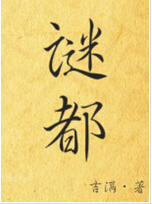 谜都
吉澫·著